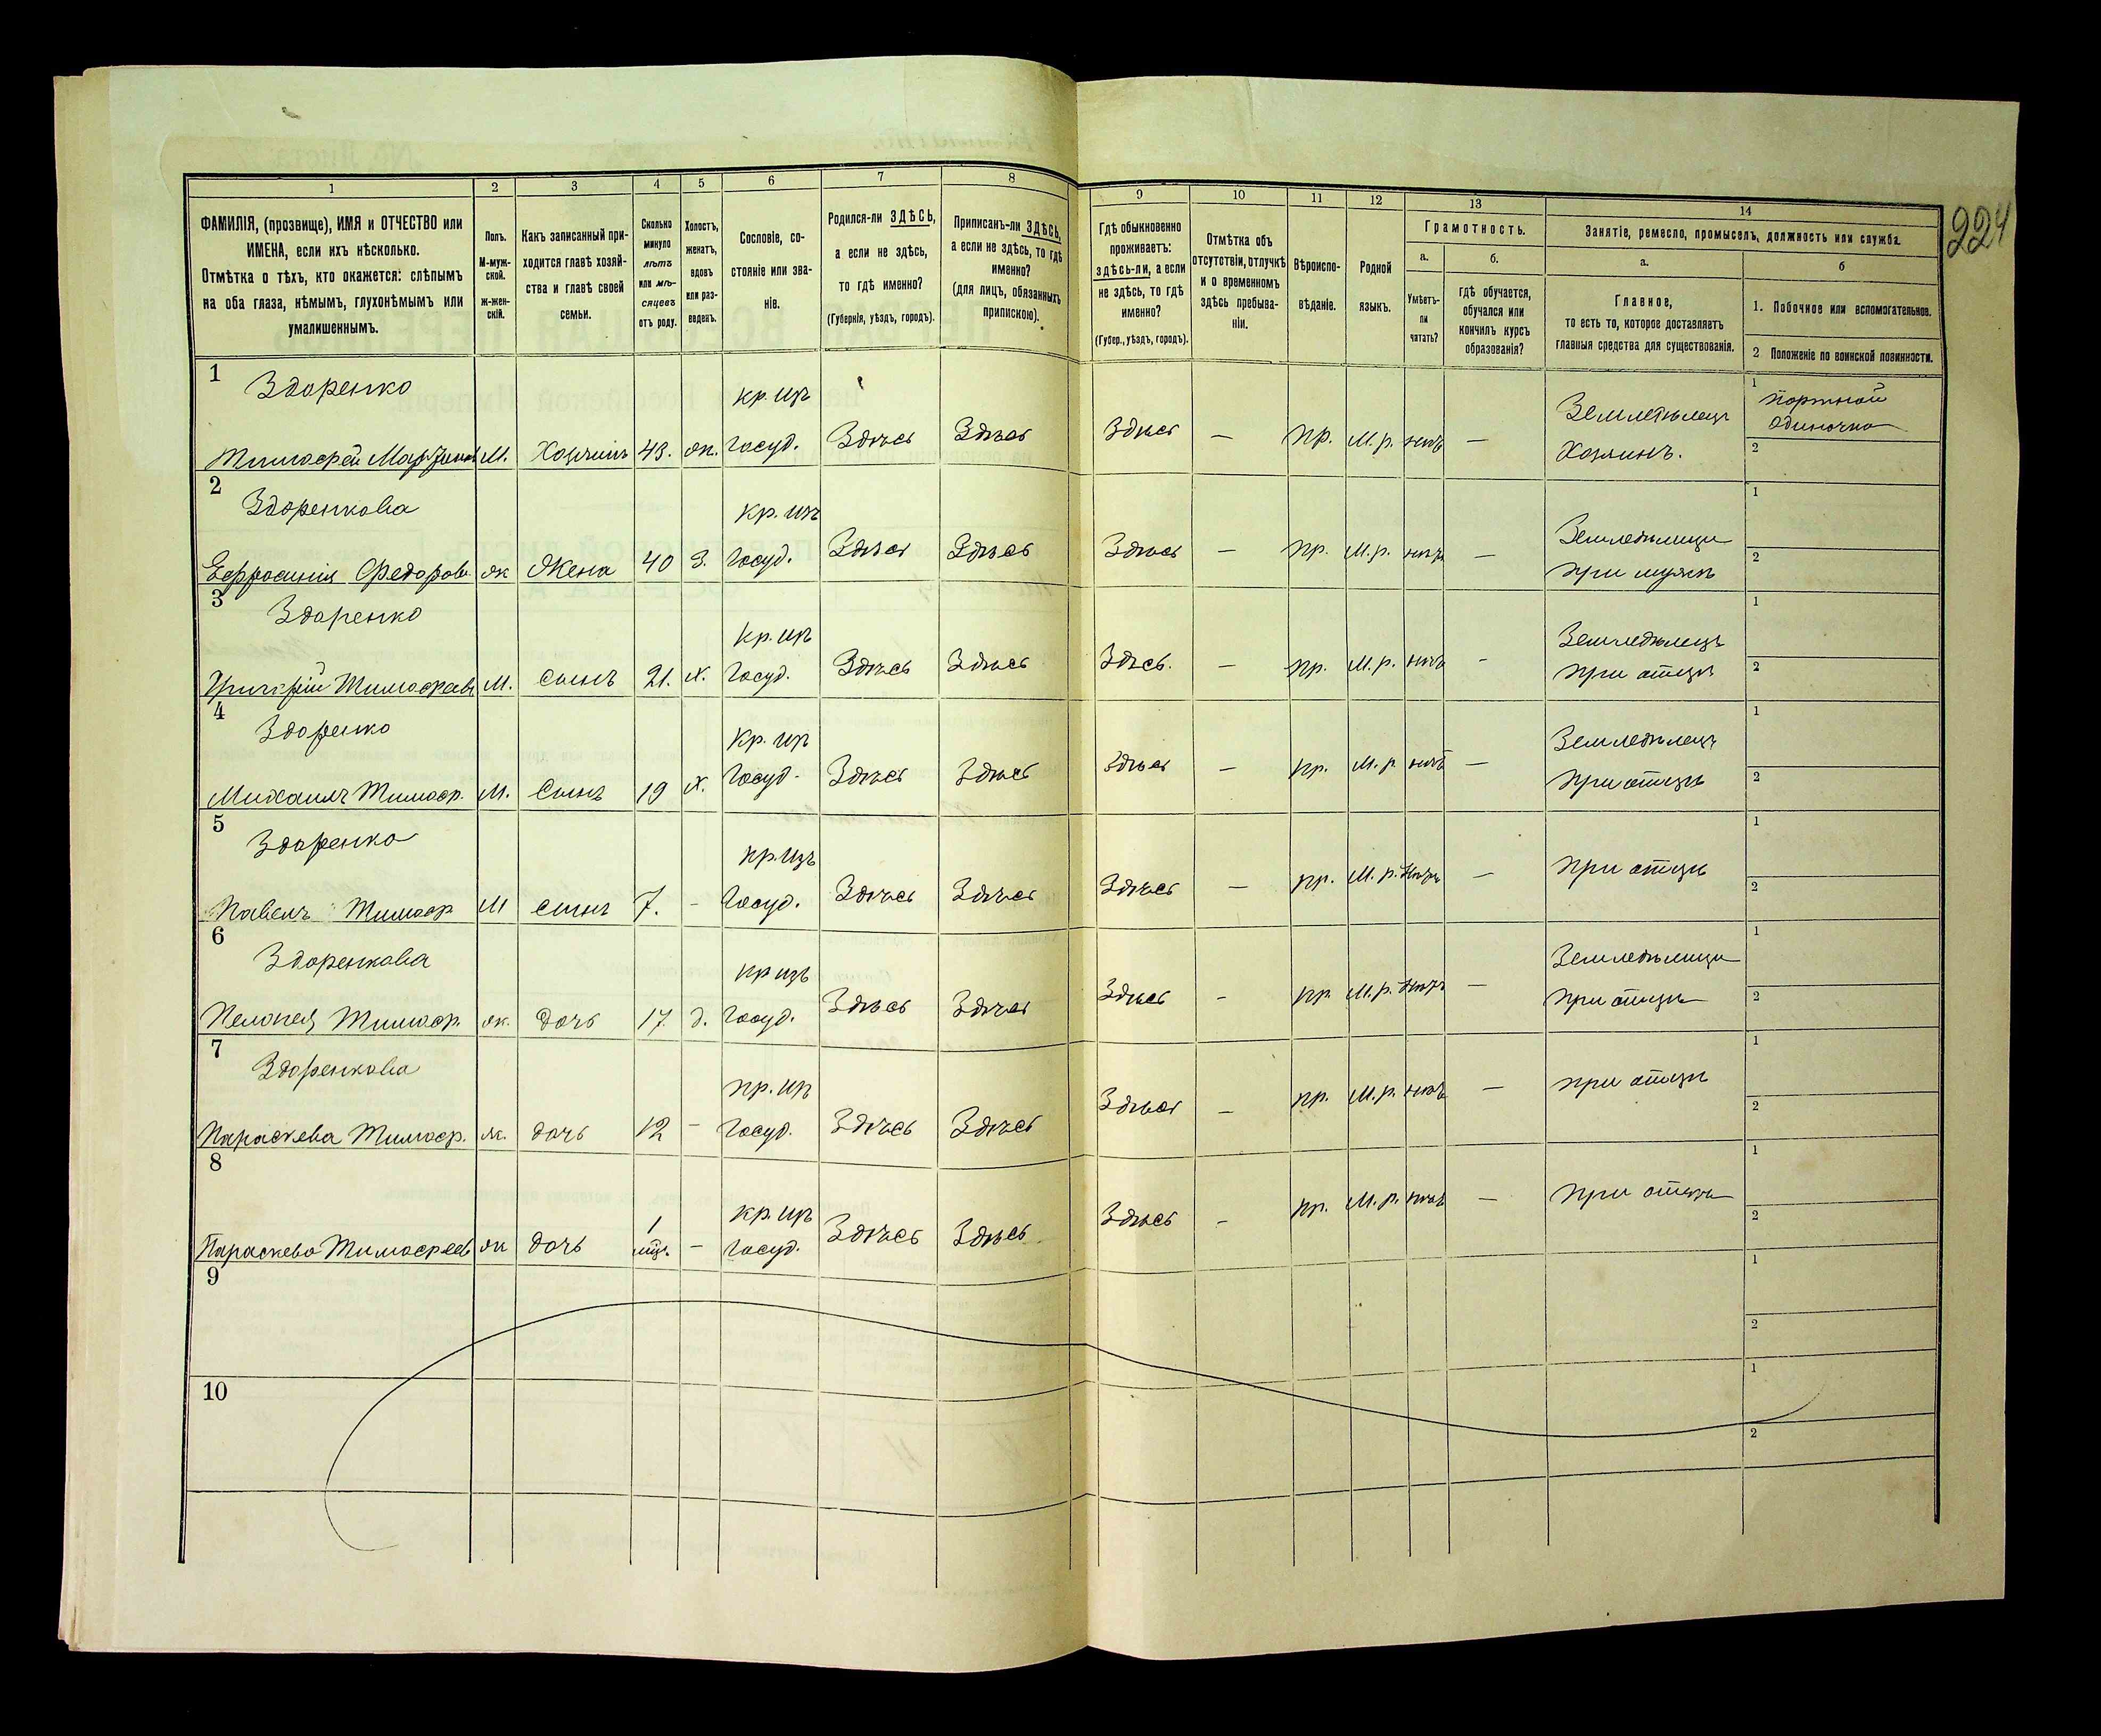 224
1 2 3 4 5 6 7 8 9 10 11 12 13 14
ФАМИЛІЯ, (прозвище), ИМЯ и ОТЧЕСТВО или ИМЕНА, если ихъ нѣсколько.
Отмѣтка о тѣхъ, кто окажется: слѣпымъ на оба глаза, нѣмымъ, глухонѣмымъ или умалишеннымъ.
Полъ. М-мужской. ж-женскій.
Какъ записанный приходится главѣ хозяйства и главѣ своей семьи.
Сколько минуло лѣтъ или мѣсяцевъ отъ роду.
Холостъ, женатъ, вдовъ или разведенъ.
Сословіе, состояніе или званіе.
Родился-ли ЗДѢСЬ, а если не здѣсь, то гдѣ именно? (Губернія, уѣздъ, городъ).
Приписанъ-ли ЗДѢСЬ, а если не здѣсь, то гдѣ именно? (для лицъ, обязанныхъ припискою).
Гдѣ обыкновенно проживаетъ: здѣсь-ли, а если не здѣсь, то гдѣ именно? (Губер., уѣздъ, городъ).
Отмѣтка объ отсутствіи, отлучкѣ и о временномъ здѣсь пребываніи.
Вѣроисповѣданіе.
Родной языкъ.
Грамотность.
а. Умѣетъ-ли читать?
б. гдѣ обучается, обучался или кончилъ курсъ образованія?
Занятіе, ремесло, промыселъ, должность или служба.
а. Главное, то есть то, которое доставляетъ главныя средства для существованія.
б
1. Побочное или вспомогательное.
2 Положеніе по воинской повинности.
1 Здоренко кр. изъ Земледѣлецъ 1 портной одиночка
Тимофей М. Хозяинъ 43. ж. Госуд. Здѣсь Здѣсь Здѣсь — пр. М.р. нѣтъ — Хозяинъ. 2
2 Здоренкова кр. изъ Земледѣлица 1
Ефросинія Федоров. ж Жена 40 З. Госуд. Здѣсь Здѣсь Здѣсь — пр. М.р. нѣтъ — при мужѣ 2
3 Здоренко кр. изъ Земледѣлецъ 1
Григорій Тимофеев М. сынъ 21. х. Госуд. Здѣсь Здѣсь Здѣсь. — пр. М.р. нѣтъ - при отцѣ 2
4 Здоренко кр. изъ Земледѣлецъ 1
Михаилъ Тимоф. М. Сынъ 19 х. Госуд. Здѣсь Здѣсь Здѣсь — пр. М.р нѣтъ — при отцѣ 2
5 Здоренко кр. изъ 1
Павелъ Тимоф М сынъ 7. - Госуд. Здѣсь Здѣсь Здѣсь — пр. М.р. Нѣтъ — при отцѣ 2
6 Здоренкова кр изъ Земледѣлица 1
Пелагея Тимоф. ж. дочь 17 д. Госуд. Здѣсь Здѣсь Здѣсь - пр М.р. Нѣтъ — при отцѣ 2
7 Здоренкова кр. изъ 1
Параскева Тимоф. ж. дочь 12 - Госуд. Здѣсь Здѣсь Здѣсь — пр. М.р. нѣтъ — при отцѣ 2
8 кр. изъ 1
Параскева Тимофеев ж дочь 1 мѣс. — Госуд. Здѣсь Здѣсь Здѣсь - пр. М.р. нѣтъ — при отцѣ 2
9 1
2
10 1
2